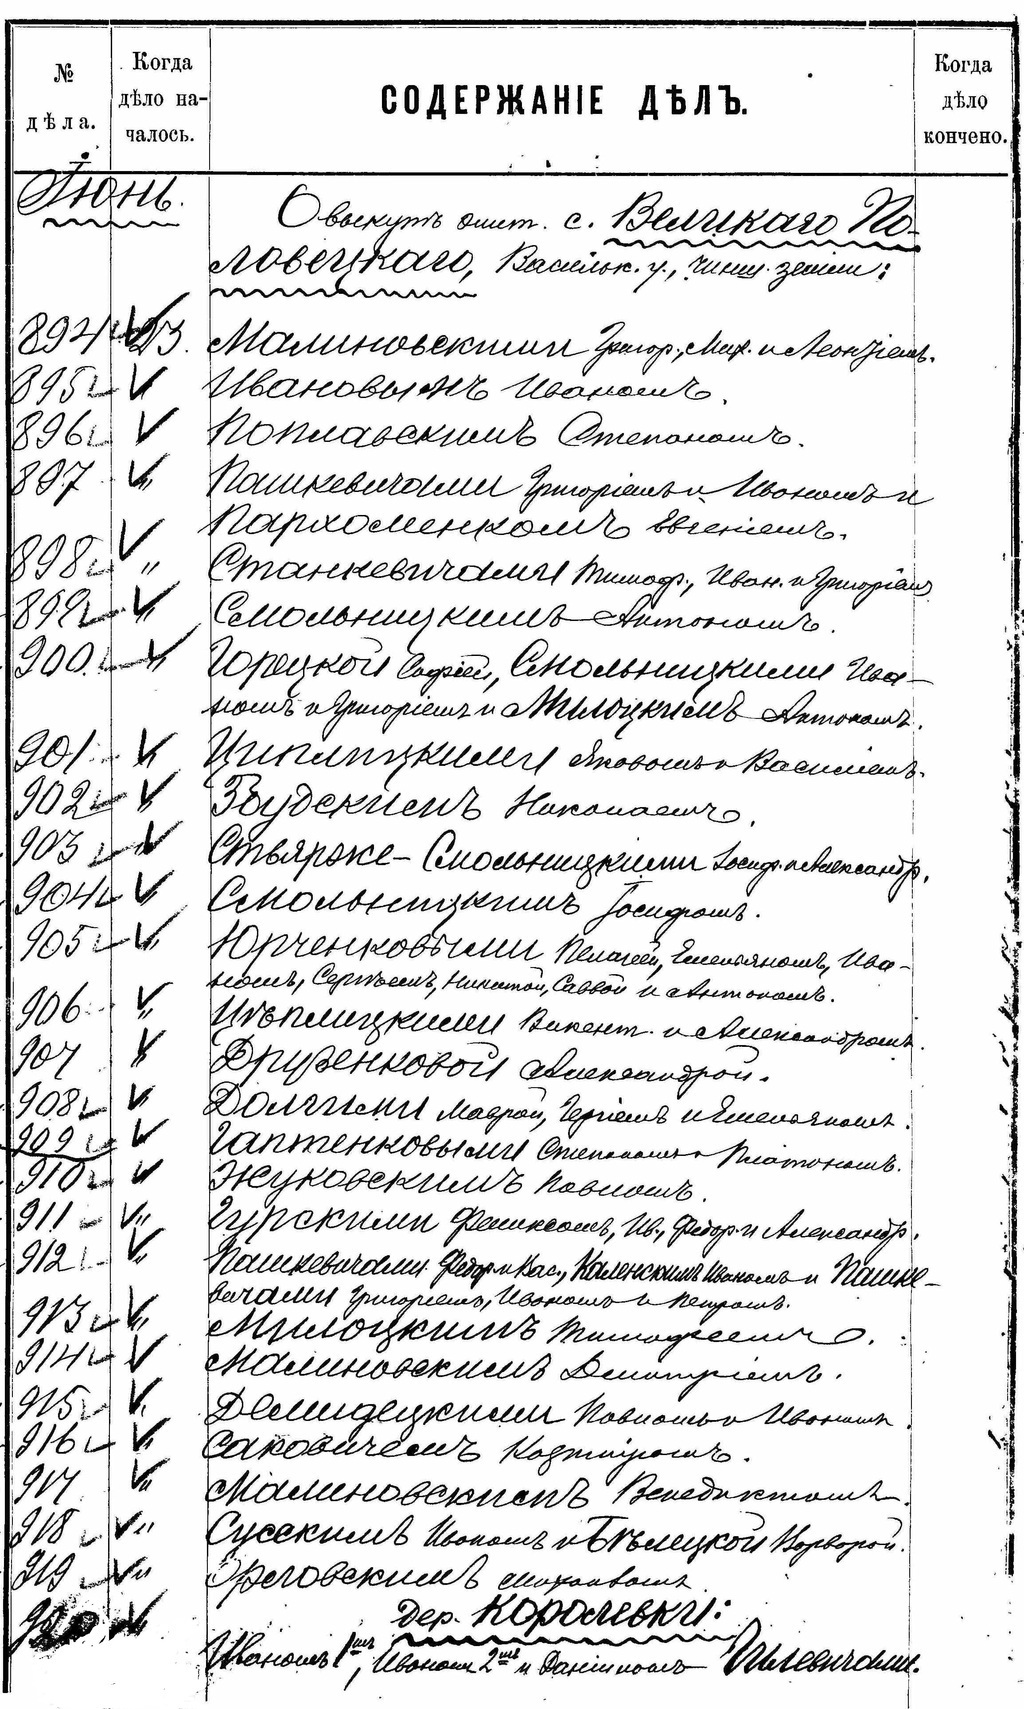 №
дѣла.
Когда
дѣло на-
чалось.
СОДЕРЖАНІЕ ДѢЛЪ.
Когда
дѣло
кончено.
Іюнь.
О выкупѣ с. Великаго По-
ловецкаго, Васильк. у., чинш. земли:
894 23. Малиновскими Григор., Мих. и Леонтіемъ.
895 Ивановымъ Иваномъ.
896 Поплавскимъ Степаномъ.
897 " Пашкевичами Григоріемъ и Иваномъ и
Пархоменкомъ Евгеніемъ.
898 " Станкевичами Тимоф., Иван. и Григоріем
899 " Смольницкимъ Антономъ.
900. " Горецкой Софіей, Смольницкими Ива-
номъ и Григоріемъ и Милоцкимъ Антономъ.
901 " Циплицкими Яковомъ и Василіемъ.
902 " Николаемъ.
903 " Смольницкими Іосиф. и Александр.
904 " Смольницкимъ Іосифомъ.
905 " Юрченковыми Пелагеей, Емельяномъ, Ива-
номъ, Сергѣемъ, Никитой, Саввой и Антономъ.
906 " Цѣплицкими Викент. и Александромъ.
907 " Друженковой Александрой.
908 " Долгими Маврой, Сергіемъ и Емельяномъ.
909 " Гаптенковыми Степаномъ и Платономъ.
910 " Жуковскимъ Павломъ.
911 " Гурскими Феликсомъ, Ив., Федор. и Александр.
912 " Пашкевичами Федор. и Вас., Каленскимъ Иваномъ и Пашке-
вичами Григоріемъ, Иваномъ и Петромъ.
913 " Милоцкимъ Тимофеемъ.
914 Малиновскимъ Дмитріемъ.
915 " Демидецкими Павломъ и Иваномъ.
916 " Саковичемъ Казиміромъ.
917 " Малиновскимъ Венедиктомъ.
918 " Сусскимъ Иваномъ и Бѣлецкой Варварой.
919 " Орловскимъ
дер. Королевки:
920 " Иваномъ 1мъ, Иваном 2мъ и Даніиломъ Ильевичами.